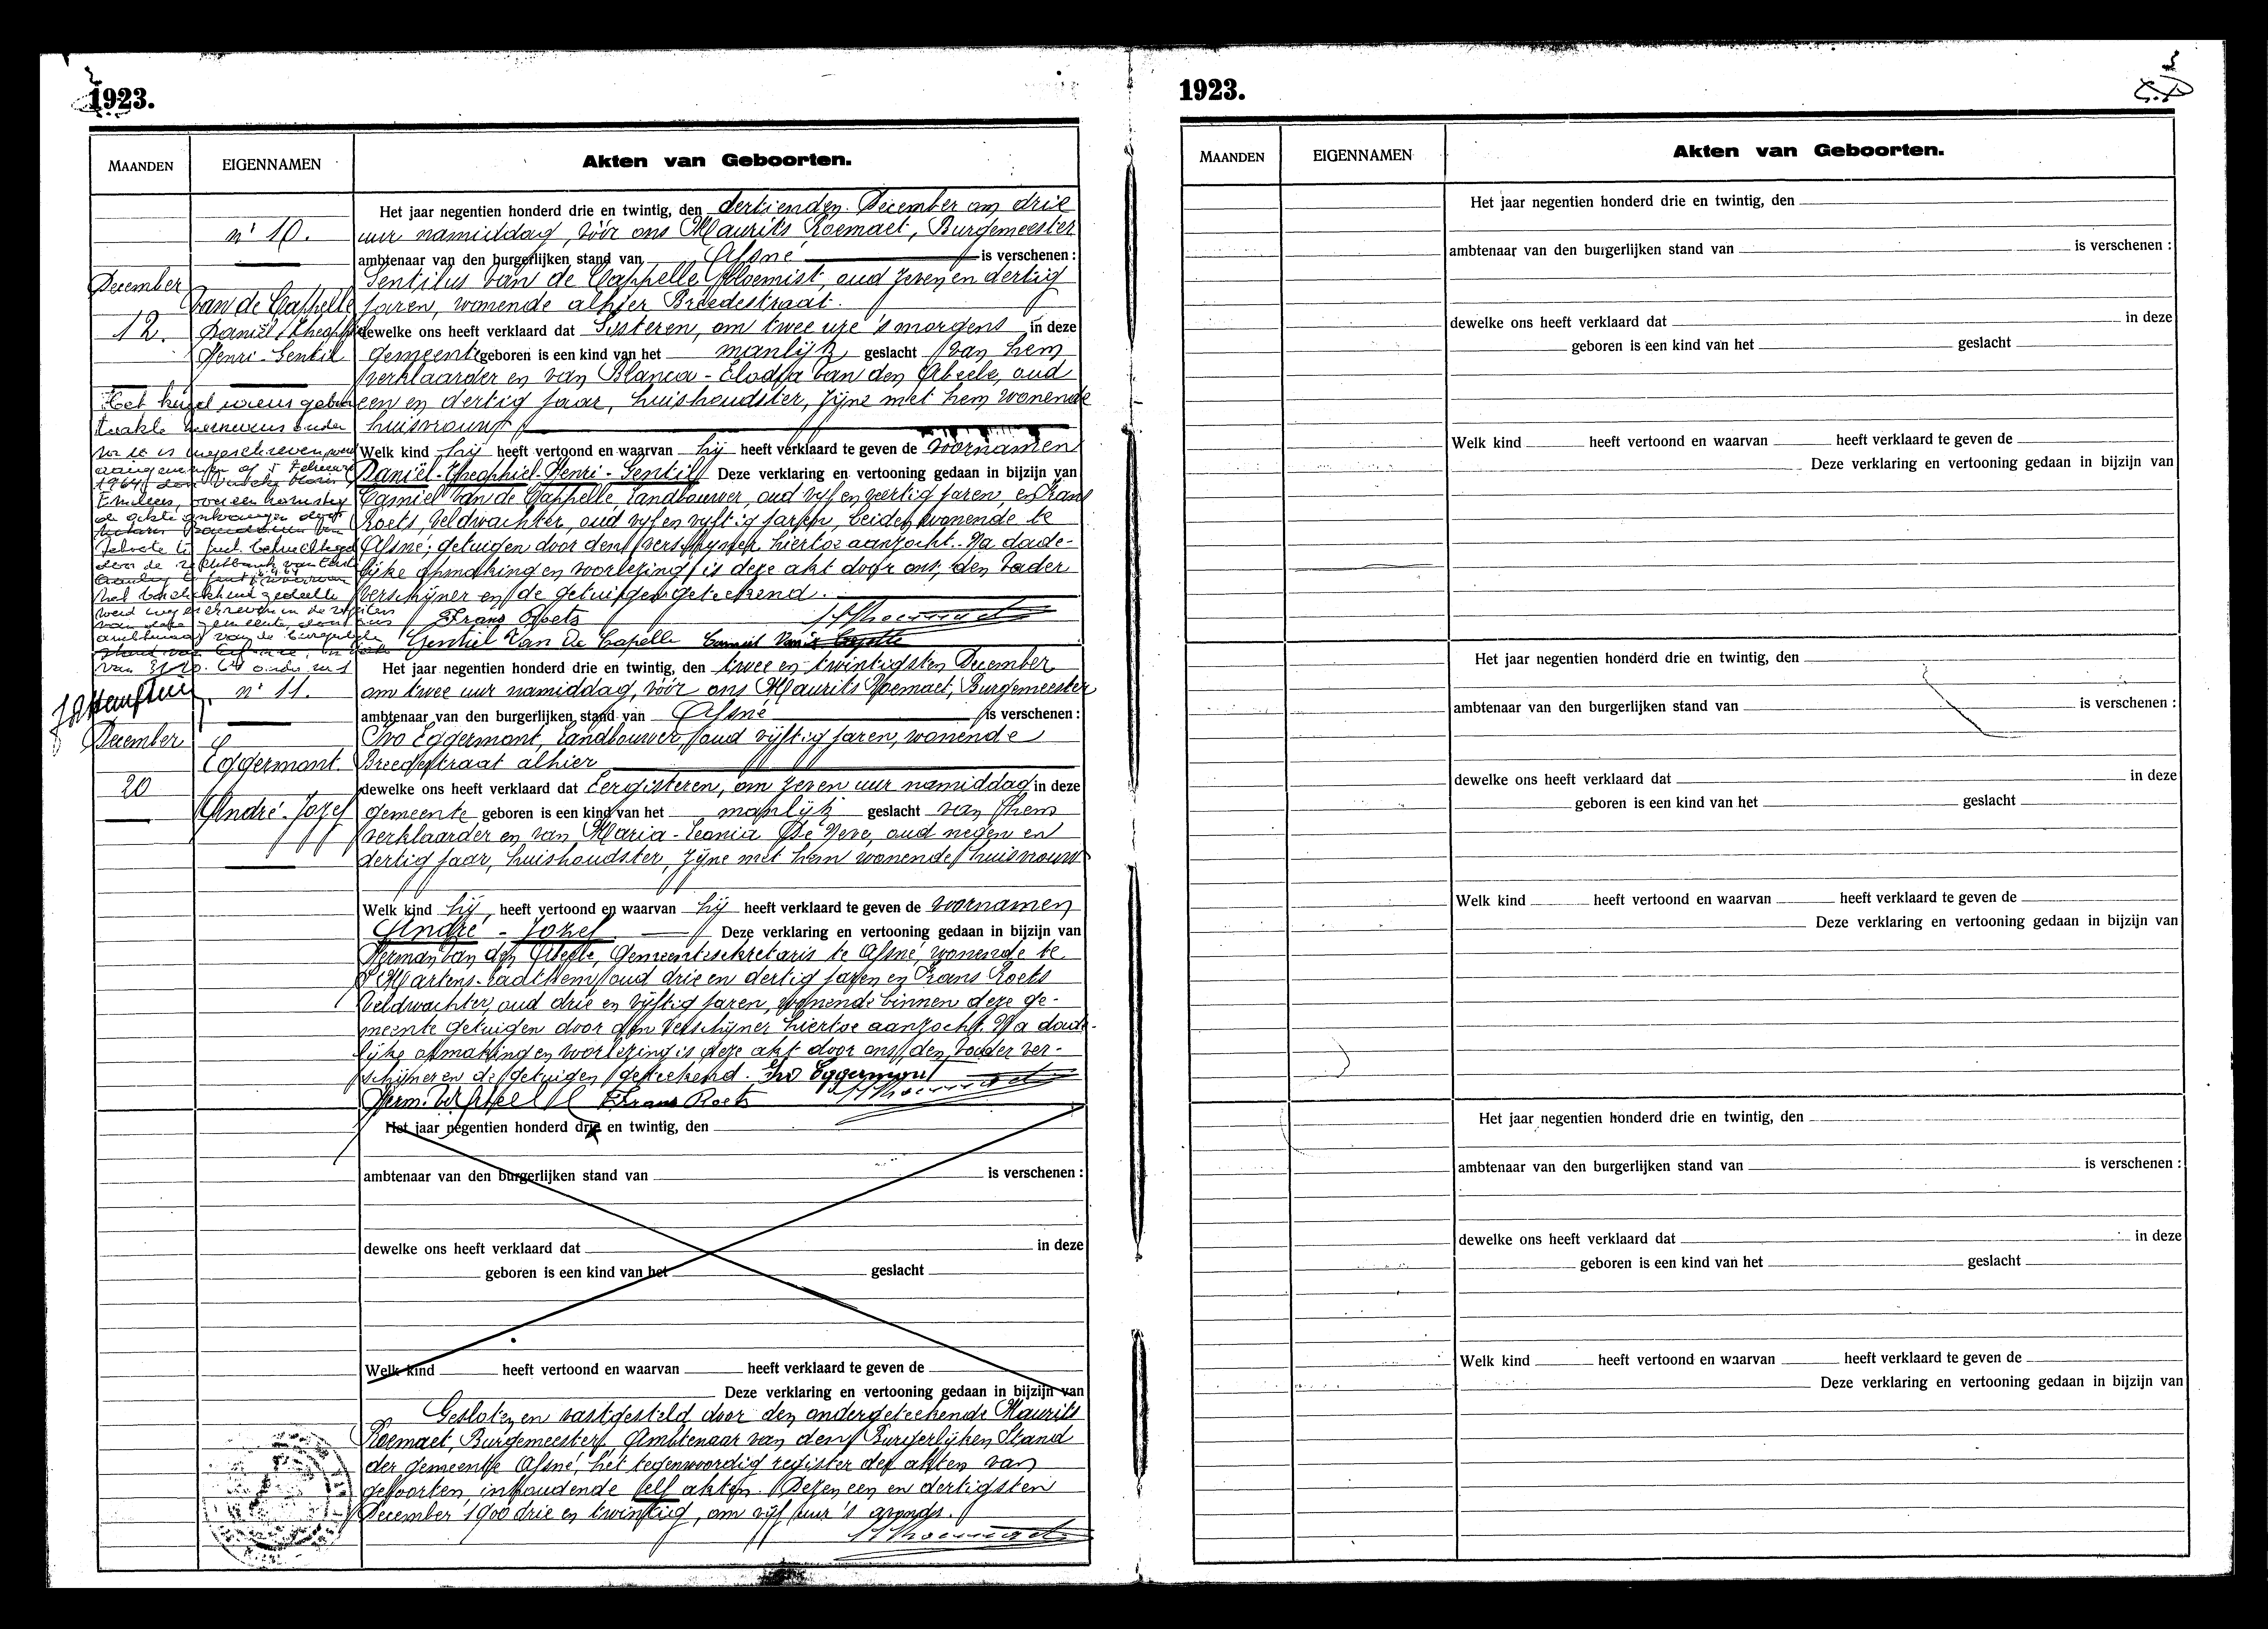 1923.
MAANDEN
EIGENNAMEN
Akten van Geboorten.
n' 10.
December
12.
Van de Cappelle
Daniël-Theophiel
Henri-Gentil
Het jaar negentien honderd drie en twintig, den dertienden December om drie
uur namiddag, vóór ons Maurits Roemaet, Burgemeester
ambtenaar van den burgerlijken stand van Afsné is verschenen :
Gentilus Van de Cappelle, bloemist, oud zeven en dertig
jaren, wonende alhier Breedestraat.
dewelke ons heeft verklaard dat Gisteren, om twee ure 's morgens in deze
gemeente geboren is een kind van het manlijk geslacht van hem
verklaarder en van Blanca-Elodia Van den Abeele, oud
een en dertig jaar, huishoudster, zijne met hem wonende
huisvrouw
Welk kind hij heeft vertoond en waarvan hij heeft verklaard te geven de voornamen
Daniël-Theophiel-Henri-Gentil Deze verklaring en vertooning gedaan in bijzijn van
Camiel Van de Cappelle, Landbouwer, oud vijf en veertig jaren, en Frans
Roets, Veldwachter, oud vijf en vijftig jaren, beiden wonende te
Afsné; getuigen door den verschijner hiertoe aanzocht. Na dade-
lijke opmaking en voorlezing is deze akt door ons, den vader
verschijner en de getuigen geteekend.
Frans Roets
Gentiel Van De Capelle
n' 11.
December
20
Eggermont.
André-Jozef
Het jaar negentien honderd drie en twintig, den twee en twintigsten December
om twee uur namiddag, vóór ons Maurits Roemaet, Burgemeester
ambtenaar van den burgerlijken stand van Afsné is verschenen :
Ivo Eggermont, Landbouwer, oud vijftig jaren, wonende
Breedestraat alhier
dewelke ons heeft verklaard dat Eergisteren, om zeven uur namiddag in deze
gemeente geboren is een kind van het manlijk geslacht van hem
verklaarder en van Maria-Leonia De Neve, oud negen en
dertig jaar, huishoudster, zijne met hem wonende huisvrouw
Welk kind hij heeft vertoond en waarvan hij heeft verklaard te geven de voornamen
André - Jozef. Deze verklaring en vertooning gedaan in bijzijn van
Herman Van den Abeele, Gemeentesekretaris te Afsné, wonende te
St Martens-Laathem, oud drie en dertig jaren en Frans Roets
Veldwachter, oud drie en vijftig jaren, wonende binnen deze ge-
meente getuigen door den verschijner hiertoe aanzocht. Na dade-
lijke opmaking en voorlezing is deze akt door ons, den vader ver-
schijner en de getuigen geteekend. Ivo Eggermont
Frans Roets
Het jaar negentien honderd drie en twintig, den
ambtenaar van den burgerlijken stand van is verschenen :
dewelke ons heeft verklaard dat in deze
geboren is een kind van het geslacht
Welk kind heeft vertoond en waarvan heeft verklaard te geven de
Deze verklaring en vertooning gedaan in bijzijn van
Gesloten en vastgesteld door den ondergeteekende Maurits
Roemaet, Burgemeester, Ambtenaar van den Burgerlijken Stand
der gemeente Afsné, het tegenwoordig register der akten van
geboorten, inhoudende elf akten. Dezen een en dertigsten
December 1900 drie en twintig, om vijf uur 's avonds.
1923.
MAANDEN
EIGENNAMEN
Akten van Geboorten.
Het jaar negentien honderd drie en twintig, den
ambtenaar van den burgerlijken stand van is verschenen :
dewelke ons heeft verklaard dat in deze
geboren is een kind van het geslacht
Welk kind heeft vertoond en waarvan heeft verklaard te geven de
Deze verklaring en vertooning gedaan in bijzijn van
Het jaar negentien honderd drie en twintig, den
ambtenaar van den burgerlijken stand van is verschenen :
dewelke ons heeft verklaard dat in deze
geboren is een kind van het geslacht
Welk kind heeft vertoond en waarvan heeft verklaard te geven de
Deze verklaring en vertooning gedaan in bijzijn van
Het jaar negentien honderd drie en twintig, den
ambtenaar van den burgerlijken stand van is verschenen :
dewelke ons heeft verklaard dat in deze
geboren is een kind van het geslacht
Welk kind heeft vertoond en waarvan heeft verklaard te geven de
Deze verklaring en vertooning gedaan in bijzijn van